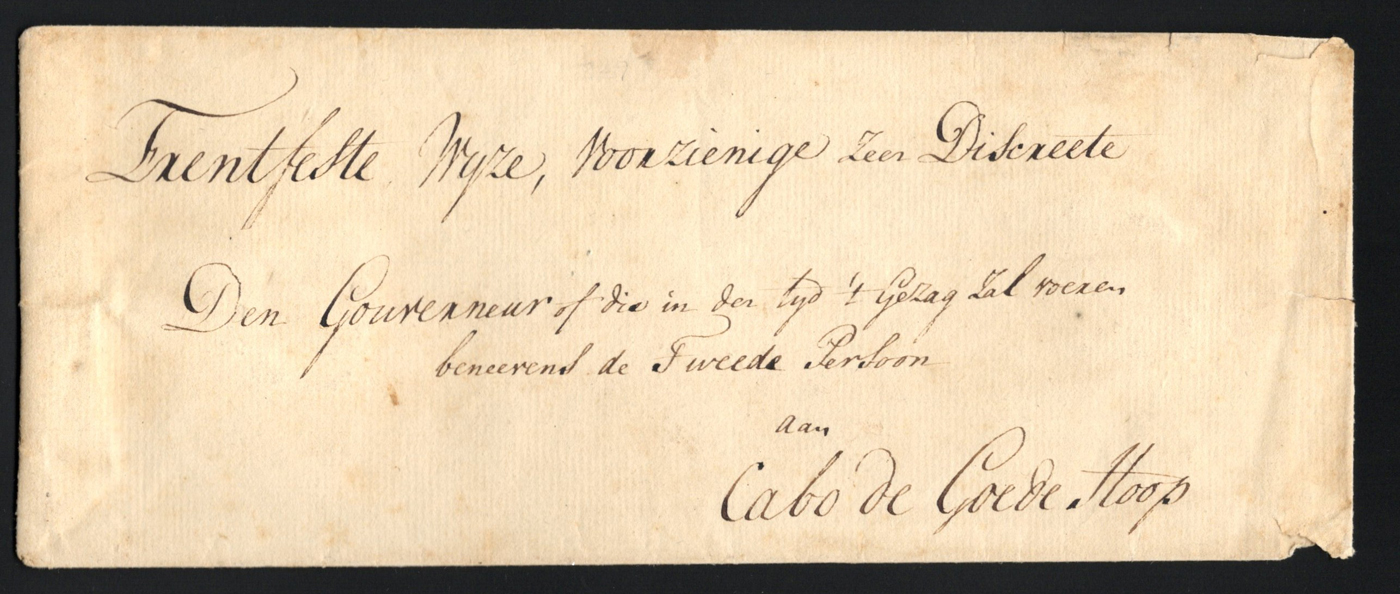 Erentfeste Wyze, Voorzienige Zeer Discreete
Den Gouverneur of die in der tyd 't Gezag Zal voeren
beneevens de Tweede Persoon
aan
Cabo de Goede Hoop